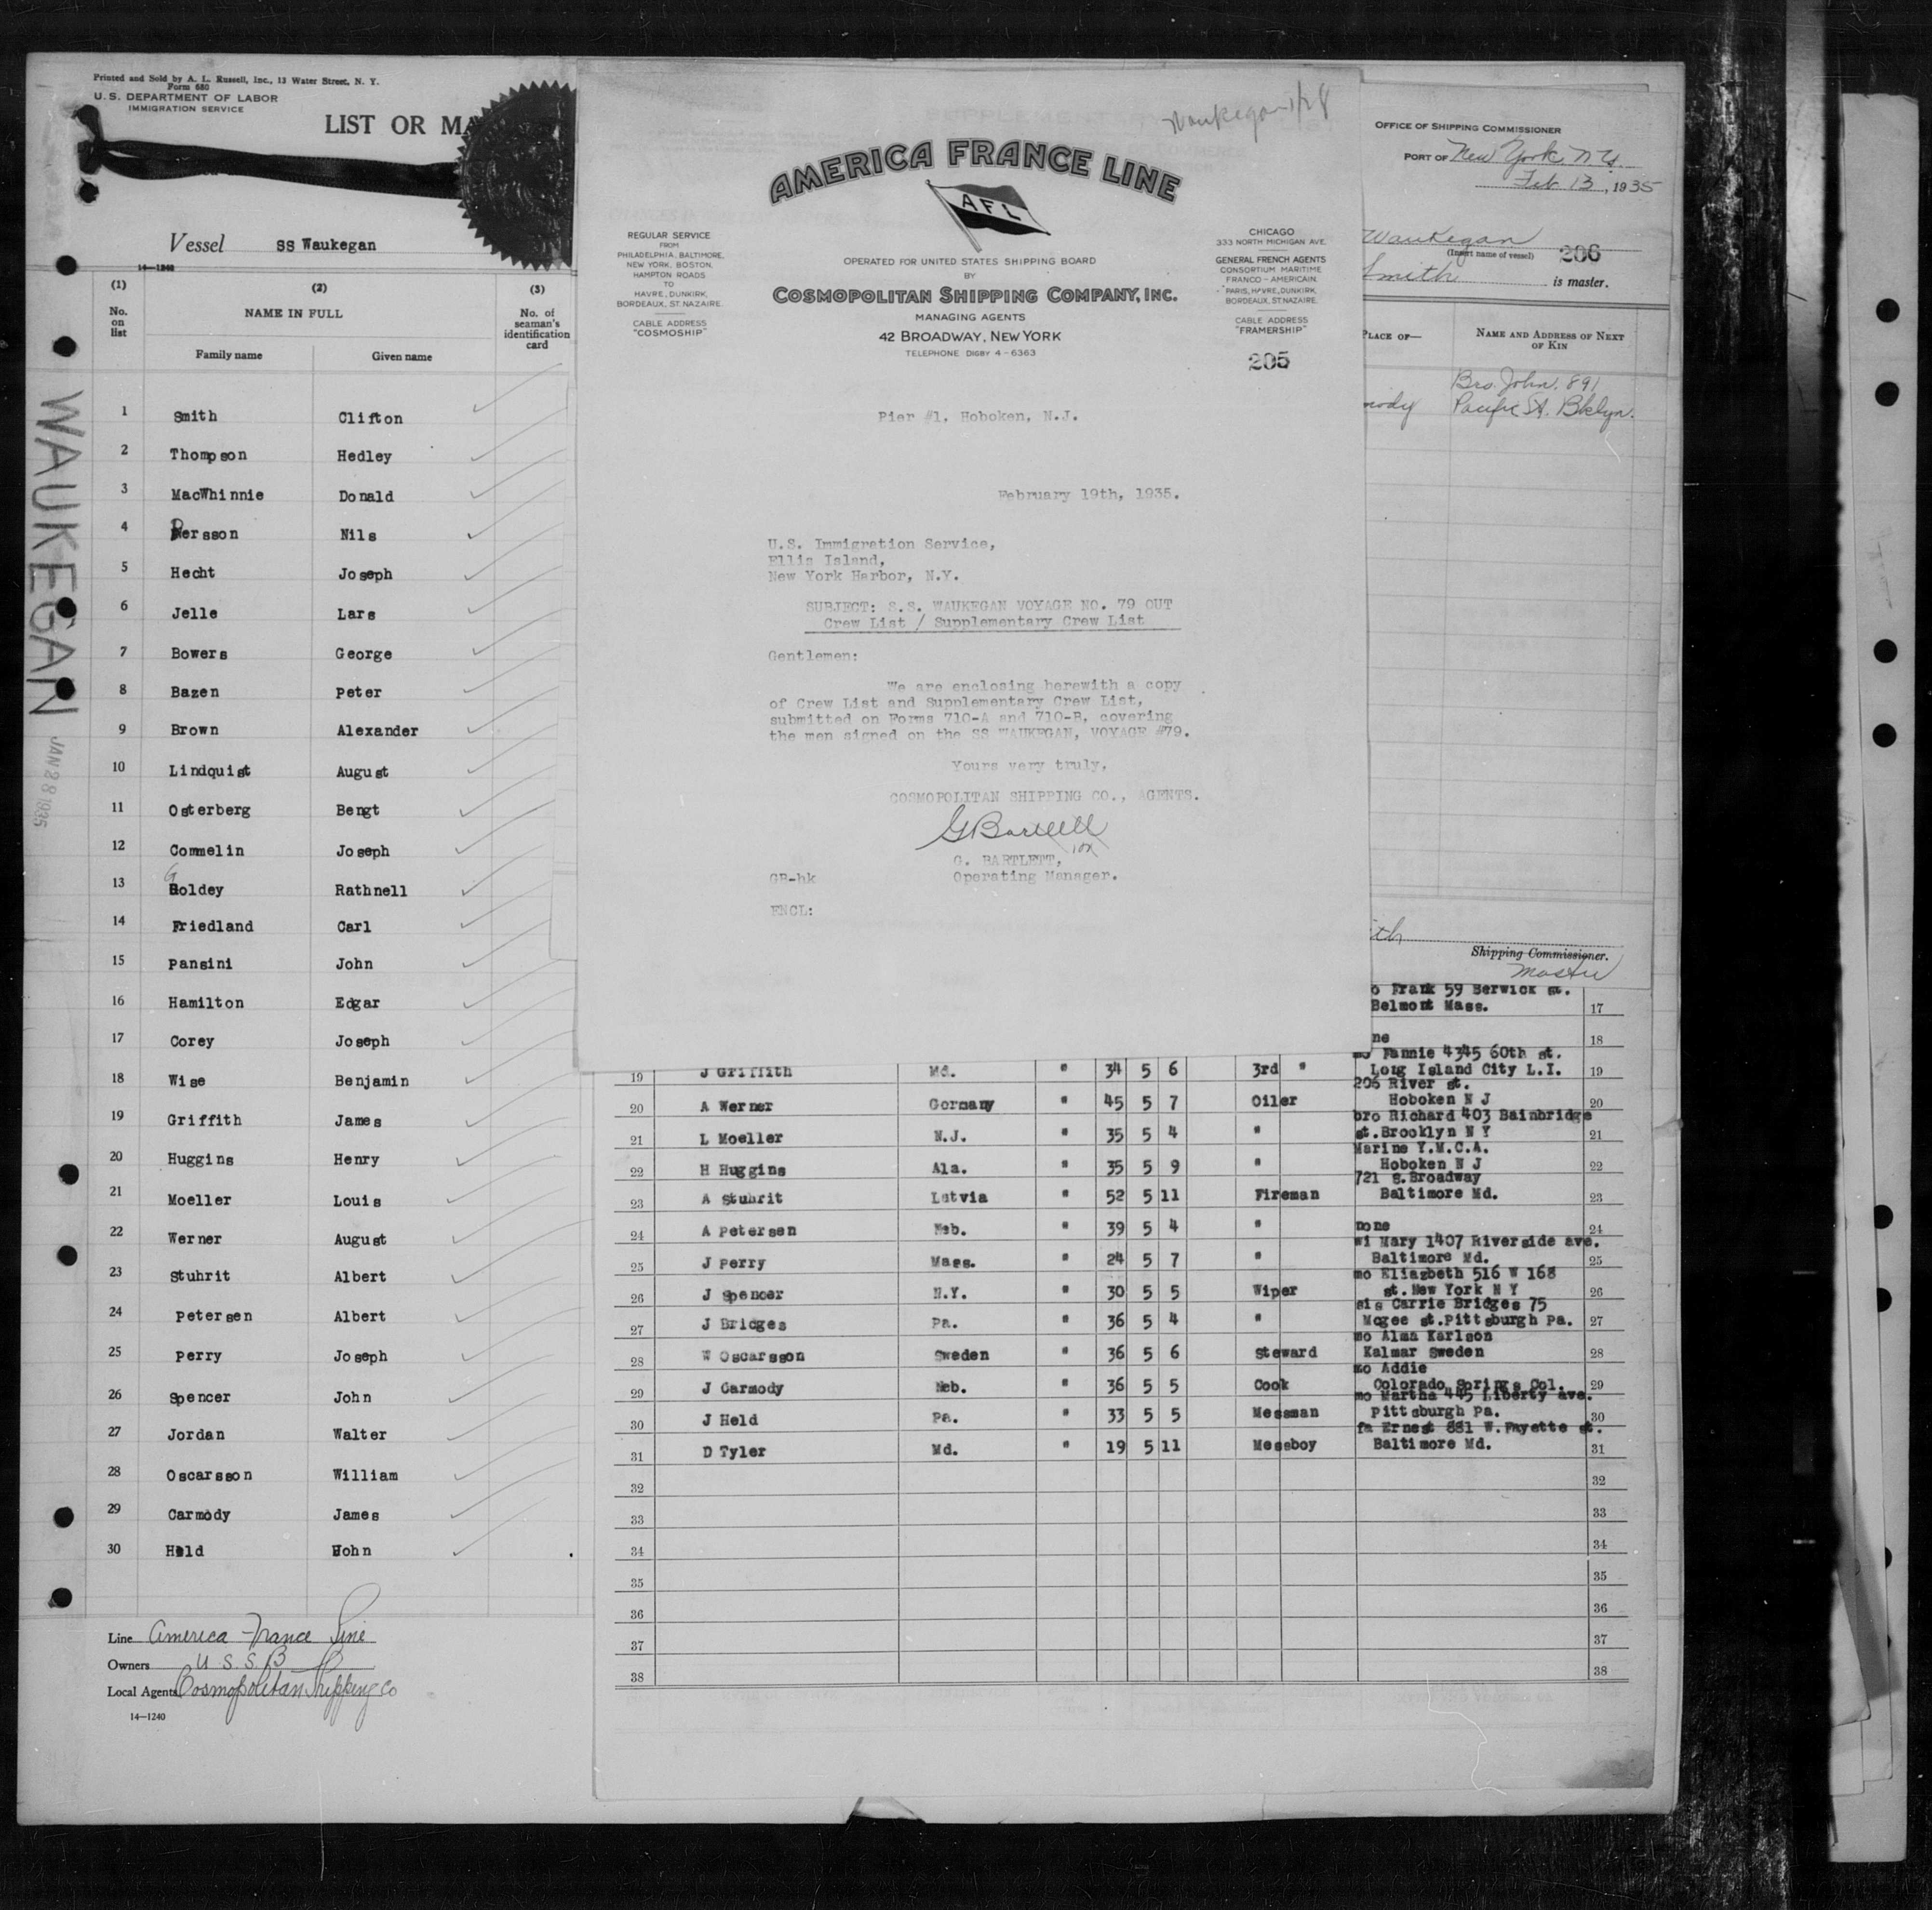 Printed and Sold by A. L. Russell, Inc., 13 Water Street, N. Y.
Form 680
U. S. DEPARTMENT OF LABOR
IMMIGRATION SERVICE
LIST OR MA
Vessel SS Waukegan
14—1240
(1) (2) (3)
No. on list
NAME IN FULL
No. of seaman's identification card
Family name Given name
1 Smith Clifton
2 Thompson Hedley
3 MacWhinnie Donald
4 Persson Nils
5 Hecht Joseph
6 Jelle Lars
7 Bowers George
8 Bazen Peter
9 Brown Alexander
10 Lindquist August
11 Osterberg Bengt
12 Commelin Joseph
13 Goldey Rathnell
14 Friedland Carl
15 Pansini John
16 Hamilton Edgar
17 Corey Joseph
18 Wise Benjamin
19 Griffith James
20 Huggins Henry
21 Moeller Louis
22 Werner August
23 Stuhrit Albert
24 Petersen Albert
25 Perry Joseph
26 Spencer John
27 Jordan Walter
28 Oscarsson William
29 Carmody James
30 Held Hohn
Line America-France Line
Owners U.S.S.B
Local Agents Cosmopolitan Shipping Co
14—1240
WAUKEGAN
JAN 28 1935
Waukegan 1/28
AMERICA FRANCE LINE
AFL
REGULAR SERVICE
FROM
PHILADELPHIA, BALTIMORE,
NEW YORK, BOSTON,
HAMPTON ROADS
TO
HAVRE, DUNKIRK,
BORDEAUX, ST. NAZAIRE.
CABLE ADDRESS
"COSMOSHIP"
OPERATED FOR UNITED STATES SHIPPING BOARD
BY
COSMOPOLITAN SHIPPING COMPANY, INC.
MANAGING AGENTS
42 BROADWAY, NEW YORK
TELEPHONE DIGBY 4-6363
CHICAGO
333 NORTH MICHIGAN AVE.
GENERAL FRENCH AGENTS
CONSORTIUM MARITIME
FRANCO-AMERICAIN,
PARIS, HAVRE, DUNKIRK,
BORDEAUX, ST. NAZAIRE.
CABLE ADDRESS
"FRAMERSHIP"
205
Pier #1, Hoboken, N.J.
February 19th, 1935.
U.S. Immigration Service,
Ellis Island,
New York Harbor, N.Y.
SUBJECT: S.S. WAUKEGAN VOYAGE NO. 79 OUT
Crew List / Supplementary Crew List
Gentlemen:
We are enclosing herewith a copy
of Crew List and Supplementary Crew List,
submitted on Forms 710-A and 710-B, covering
the men signed on the SS WAUKEGAN, VOYAGE #79.
Yours very truly,
COSMOPOLITAN SHIPPING CO., AGENTS.
G Bartlett
G. BARTLETT,
GB-hk Operating Manager.
ENCL:
OFFICE OF SHIPPING COMMISSIONER
PORT OF New York N.Y.
Feb 13, 1935
Waukegan 206
(Insert name of vessel)
Smith is master.
PLACE OF—
NAME AND ADDRESS OF NEXT OF KIN
Bro. John. 891
Pacific St. Bklyn.
Shipping Commissioner.
Master
o Frank 59 Berwick st.
Belmont Mass. 17
ne 18
mo Fannie 4345 60th st.
19 J Griffith Md. " 34 5 6 3rd " Long Island City L.I. 19
206 River st.
20 A Werner Germany " 45 5 7 Oiler Hoboken N J 20
bro Richard 403 Bainbridge
21 L Moeller N.J. " 35 5 4 " st.Brooklyn N Y 21
Marine Y.M.C.A.
22 H Huggins Ala. " 35 5 9 " Hoboken N J 22
721 S.Broadway
23 A Stuhrit Latvia " 52 5 11 Fireman Baltimore Md. 23
24 A Petersen Neb. " 39 5 4 " none 24
wi Mary 1407 Riverside ave.
25 J Perry Mass. " 24 5 7 " Baltimore Md. 25
mo Eliazbeth 516 W 168
26 J Spencer N.Y. " 30 5 5 Wiper st.New York N Y 26
sis Carrie Bridges 75
27 J Bridges Pa. " 36 5 4 " Mcgee st.Pittsburgh Pa. 27
mo Alma Karlson
28 W Oscarsson Sweden " 36 5 6 Steward Kalmar Sweden 28
mo Addie
29 J Carmody Neb. " 36 5 5 Cook Colorado Springs Col. 29
mo Martha 445 Liberty ave.
30 J Held Pa. " 33 5 5 Messman Pittsburgh Pa. 30
fa Ernest 881 W.Fayette st.
31 D Tyler Md. " 19 5 11 Messboy Baltimore Md. 31
32 32
33 33
34 34
35 35
36 36
37 37
38 38